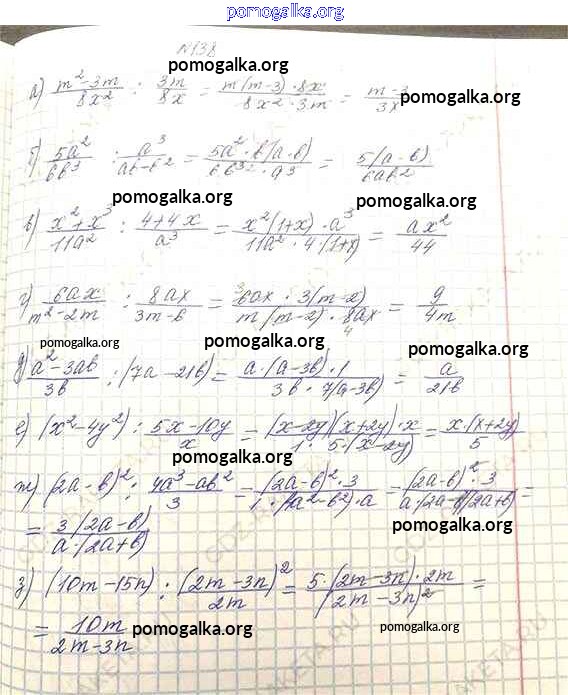 pomogalka.org
№138
pomogalka.org
а) (m²-3m)/(8x²) : 3m/8x = (m(m-3)·8x)/(8x²·3m) = (m-3)/3x
pomogalka.org
б) 5a²/6b³ : a³/(ab-b²) = (5a²·b(a-b))/(6b³·a³) = 5(a-b)/6ab²
pomogalka.org
в) (x²+x³)/11a² : (4+4x)/a³ = (x²(1+x)·a³)/(11a²·4(1+x)) = ax²/44
pomogalka.org
г) 6ax/(m²-2m) : 8ax/(3m-6) = (6ax·3(m-2))/(m(m-2)·8ax) = 9/4m
pomogalka.org pomogalka.org
pomogalka.org
д) (a²-3ab)/3b : (7a-21b) = (a·(a-3b)·1)/(3b·7(a-3b)) = a/21b
pomogalka.org
е) (x²-4y²) : (5x-10y)/x = ((x-2y)(x+2y)·x)/(1·5·(x-2y)) = x·(x+2y)/5
pomogalka.org
ж) (2a-b)² : (4a³-ab²)/3 = ((2a-b)²·3)/(1·(4a²-b²)·a) = ((2a-b)²·3)/(a(2a-b)(2a+b)) =
= 3(2a-b)/a·(2a+b)
pomogalka.org
pomogalka.org
з) (10m-15n) : (2m-3n)²/2m = (5·(2m-3n)·2m)/(2m-3n)² =
= 10m/(2m-3n)
pomogalka.org pomogalka.org